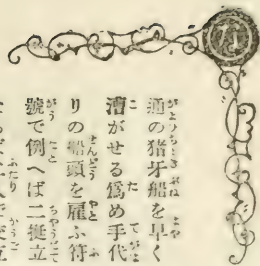 な
通の猪牙船を早く
漕がせる爲め手代
りの船頭を雇ふ符
號で例へば二挺立